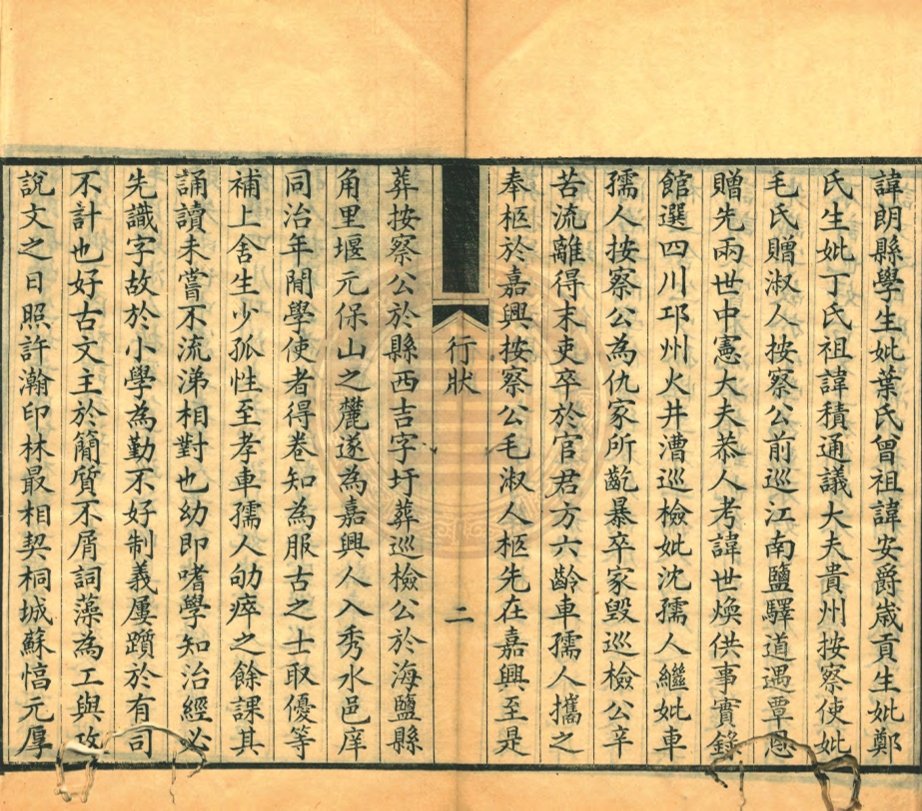 諱朗縣學生妣葉氏曾祖諱安爵歲貢生妣鄭
氏生妣丁氏祖諱積通議大夫貴州按察使妣
毛氏贈淑人按察公前巡江南鹽驛道遇覃恩
贈先兩世中憲大夫恭人考諱世煥供事實錄
館選四川邛州火井漕巡檢妣沈孺人繼妣車
孺人按察公為仇家所齕暴卒家毀巡檢公辛
苦流離得末吏卒於官君方六齡車孺人攜之
奉柩於嘉興按察公毛淑人柩先在嘉興至是
行狀
二
葬按察公於縣西吉字圩葬巡檢公於海鹽縣
角里堰元保山之麓遂為嘉興人入秀水邑庠
同治年閒學使者得卷知為服古之士取優等
補上舍生少孤性至孝車孺人劬瘁之餘課其
誦讀未嘗不流涕相對也幼即嗜學知治經必
先識字故於小學為勤不好制義屢躓於有司
不計也好古文主於簡質不屑詞藻為工與攻
說文之日照許瀚印林最相契桐城蘇惇元厚